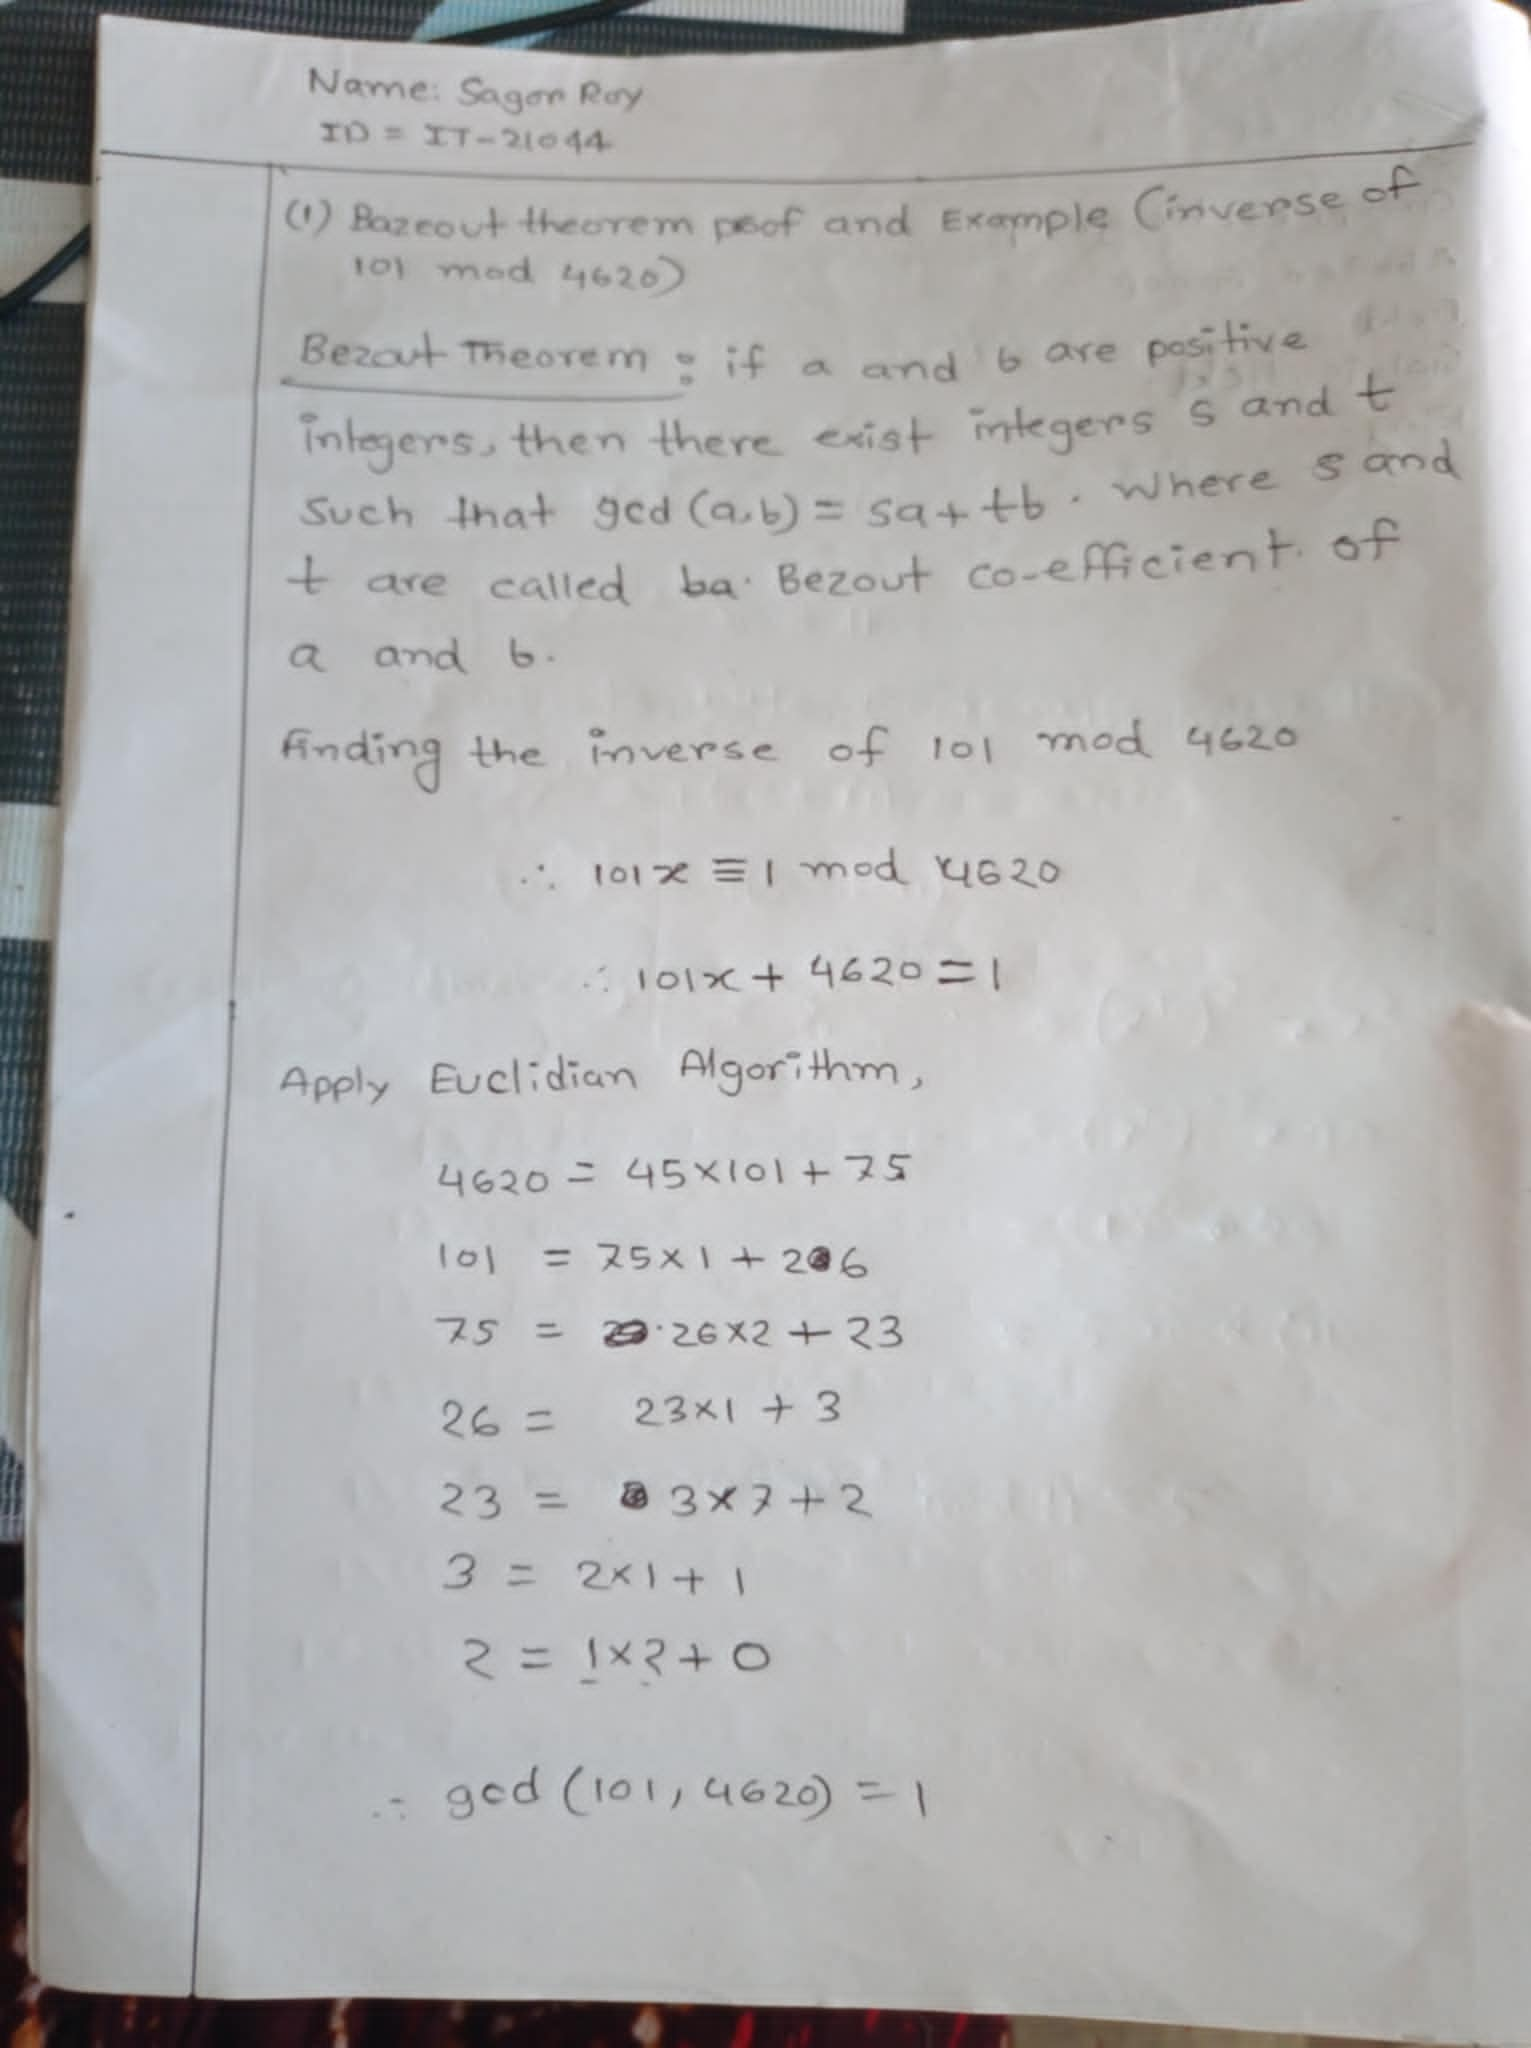 Name: Sagor Roy
ID = IT-21044
(1) Bazeout theorem peof and Example (inverse of
101 mod 4620)
Bezout Theorem : if a and b are positive
integers, then there exist integers s and t
such that gcd (a,b) = sa + tb. Where s and
t are called ba. Bezout co-efficient of
a and b.
finding the inverse of 101 mod 4620
∴ 101x ≡ 1 mod 4620
∴ 101x + 4620 = 1
Apply Euclidian Algorithm,
4620 = 45×101 + 75
101 = 75×1 + 26
75 = 26×2 + 23
26 = 23×1 + 3
23 = 3×7 + 2
3 = 2×1 + 1
2 = 1×2 + 0
∴ gcd (101, 4620) = 1